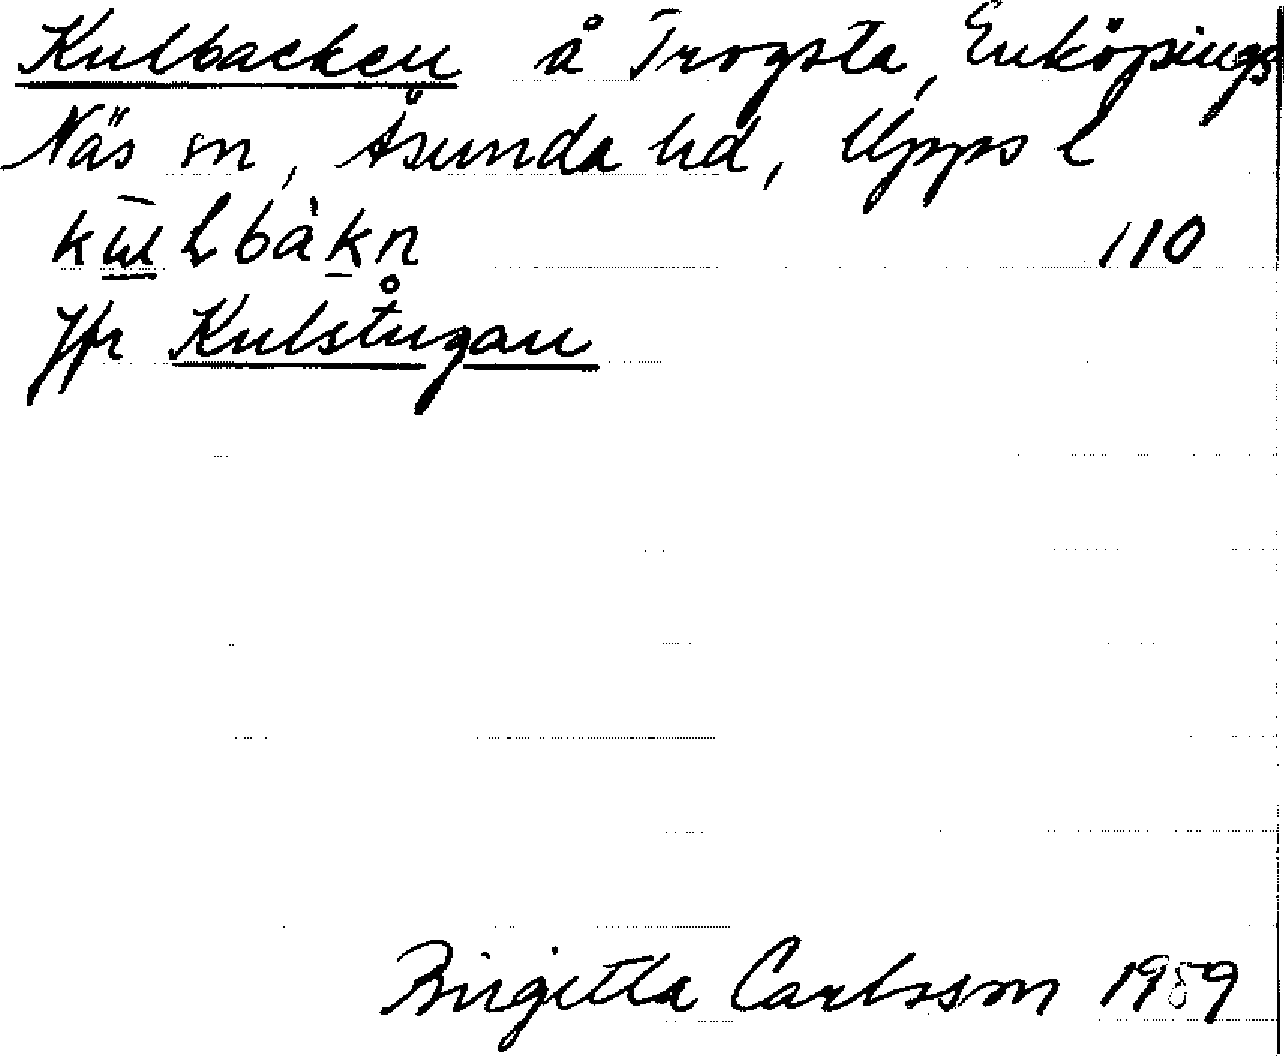 Kulbacken å Trogsta, Enköpings
Näs sn, Åsunda hd, Upps l
110
Jfr Kulstugan
Birgitta Carlsson 1959